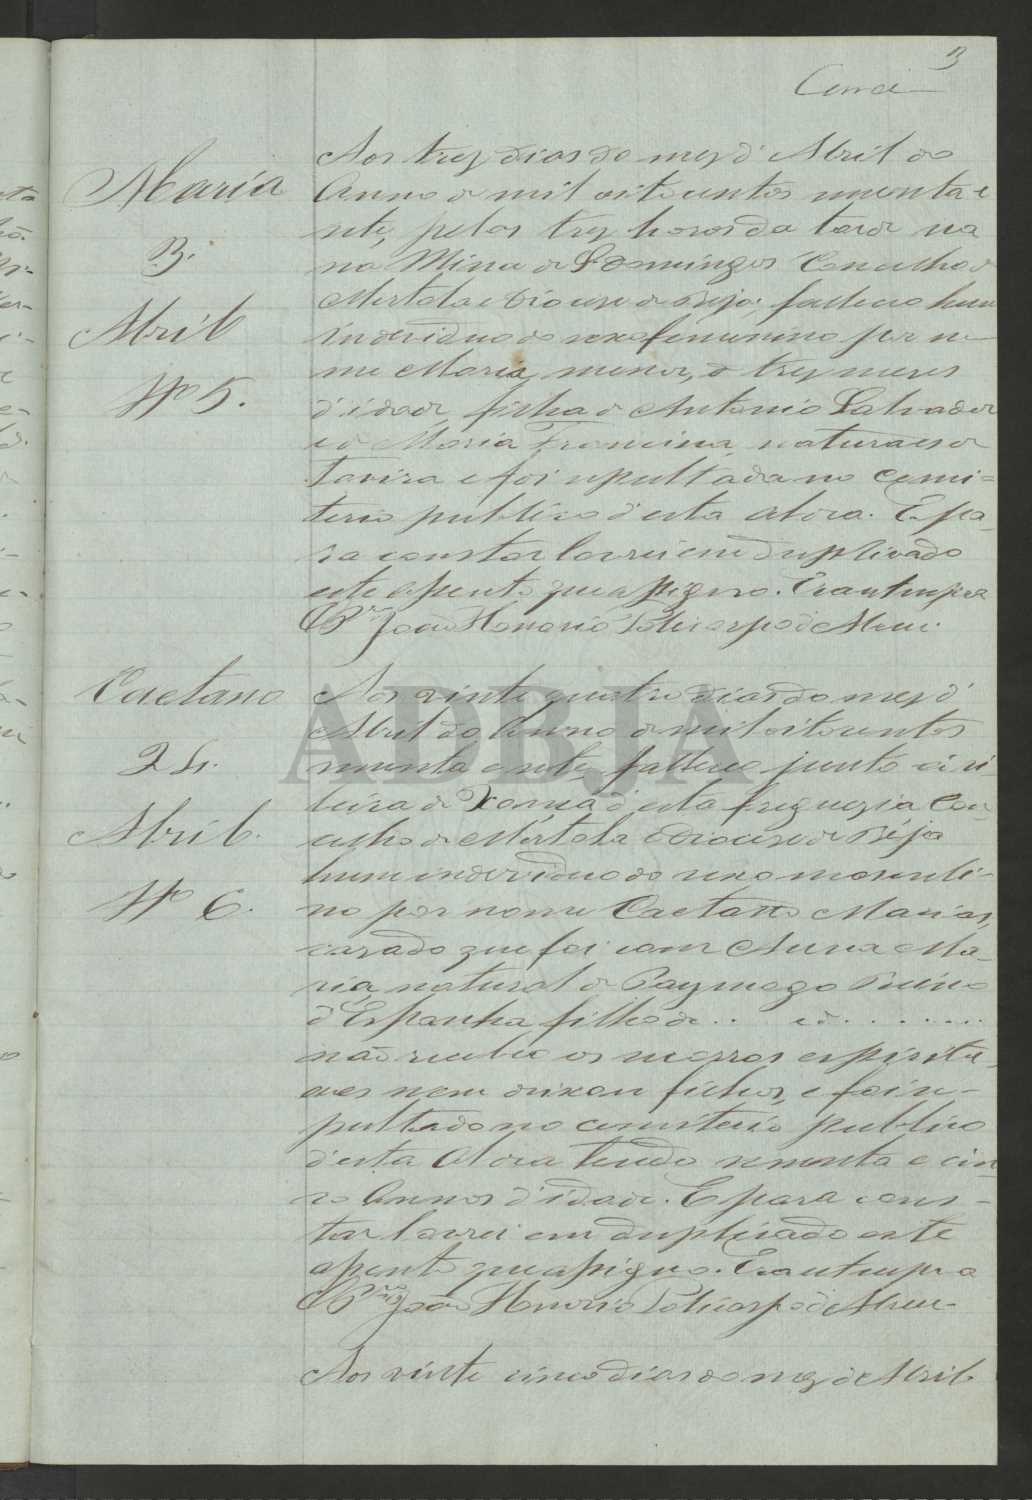 3
Maria
3.
Abril
Nº 5.
Aos trez dias do mez d' Abril do
Anno de mil oito centos
sete, pelas trez horas da tarde na
na Mina de S. Domingos Concelho de
Mertola e Diocese de Beja, falleceo hum
individuo do sexo femenino por no-
me Maria, menor, de trez meses
d'idade, filha de Antonio Salvador
e de Maria Francisca, naturaes de
Tavira e foi sepultada no Cemi-
terio publico d'esta Aldea. E pa-
ra constar lavrei em duplicado
este assento que assigno. Era ut supra
João Honorio Policarpo d'Abreu.
Caetano
24.
Abril.
Nº 6.
Aos vinte quatro dias do mez d'
Abril do Anno de mil oito centos
e sete, falleceo junto á ri-
beira de d'esta freguezia Con-
celho de Mertola e Diocese de Beja
hum individuo do sexo masculi-
no por nome Caetano Macias,
casado que foi com Anna Ma-
ria, natural de Paymogo Reino
d'Espanha filho de . . e d . . . . . . .
não recebeo os nossos espiritu-
aes nem deixou filhos, e foi se-
pultado no cemiterio publico
d'esta Aldea tendo e cin-
co Annos d'idade. E para cons-
tar lavrei em duplicado este
assento que assigno. Era ut supra
João Honorio Policarpo d'Abreu.
Aos vinte cinco dias do mez de Abril
ADBJA